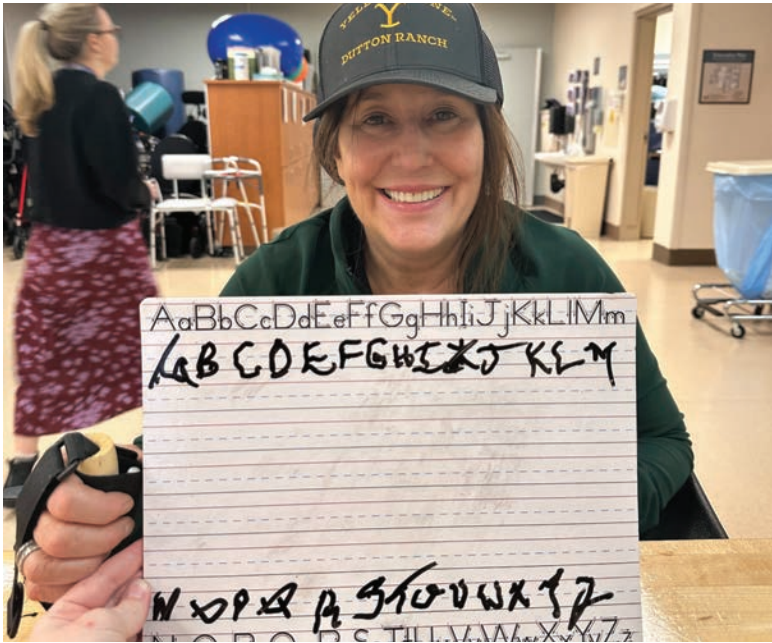 YELLOWSTONE
Y
DUTTON RANCH
AaBbCcDdEeFfGgHhIiJjKkLlMm
A a B C D E F G H I J K L M
N O P Q R S T U V W X Y Z
NOPQRSTUVWXYZz